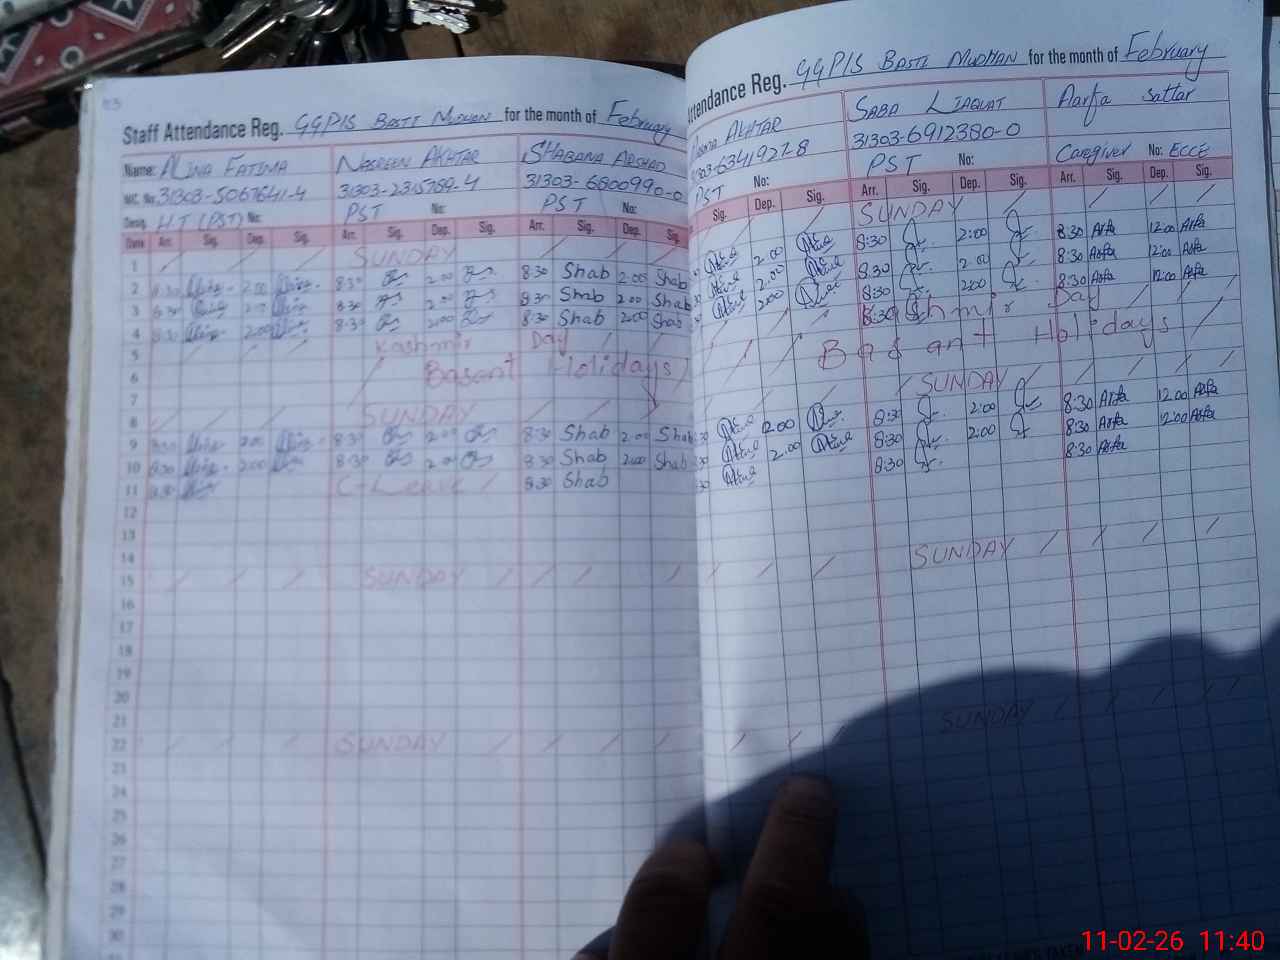 Staff Attendance Reg. GGPIS BASTI MUDHAN for the month of February
Name: ALINA FATIMA NASREEN AKHTAR SHABANA ARSHAD
NIC. No. 31303-5067641-4 31303-2315789-4 31303-6800990-0
Desig. H.T (PST) No: PST No: PST No:
Date Arr. Sig. Dep. Sig. Arr. Sig. Dep. Sig. Arr. Sig. Dep. Sig.
1 SUNDAY
2 8:30 2:00 8:30 2:00 8:30 Shab 2:00 Shab
3 8:30 2:00 8:30 2:00 8:30 Shab 2:00 Shab
4 8:30 2:00 8:30 2:00 8:30 Shab 2:00 Shab
5 Kashmir Day
6 Basant Holidays
7
8 SUNDAY
9 8:30 2:00 8:30 2:00 8:30 Shab 2:00 Shab
10 8:30 2:00 8:30 2:00 8:30 Shab 2:00 Shab
11 8:30 C-Leave 8:30 Shab
12
13
14
15 SUNDAY
16
17
18
19
20
21
22 SUNDAY
23
24
25
26
27
28
29
30
ttendance Reg. GGPIS BASTI MUDHAN for the month of February
AKHTAR SABA LIAQUAT Aarfa Sattar
31303-6341927-8 31303-6912380-0
PST No: PST No: Caregiver No: ECCE
Sig. Dep. Sig. Arr. Sig. Dep. Sig. Arr. Sig. Dep. Sig.
SUNDAY
2:00 8:30 2:00 8:30 Arfa 12:00 Arfa
2:00 8:30 2:00 8:30 Arfa 12:00 Arfa
2:00 8:30 2:00 8:30 Arfa 12:00 Arfa
Kashmir Day
Basant Holidays
SUNDAY
2:00 8:30 2:00 8:30 Arfa 12:00 Arfa
2:00 8:30 2:00 8:30 Arfa 12:00 Arfa
8:30 8:30 Arfa
SUNDAY
SUNDAY
11-02-26 11:40